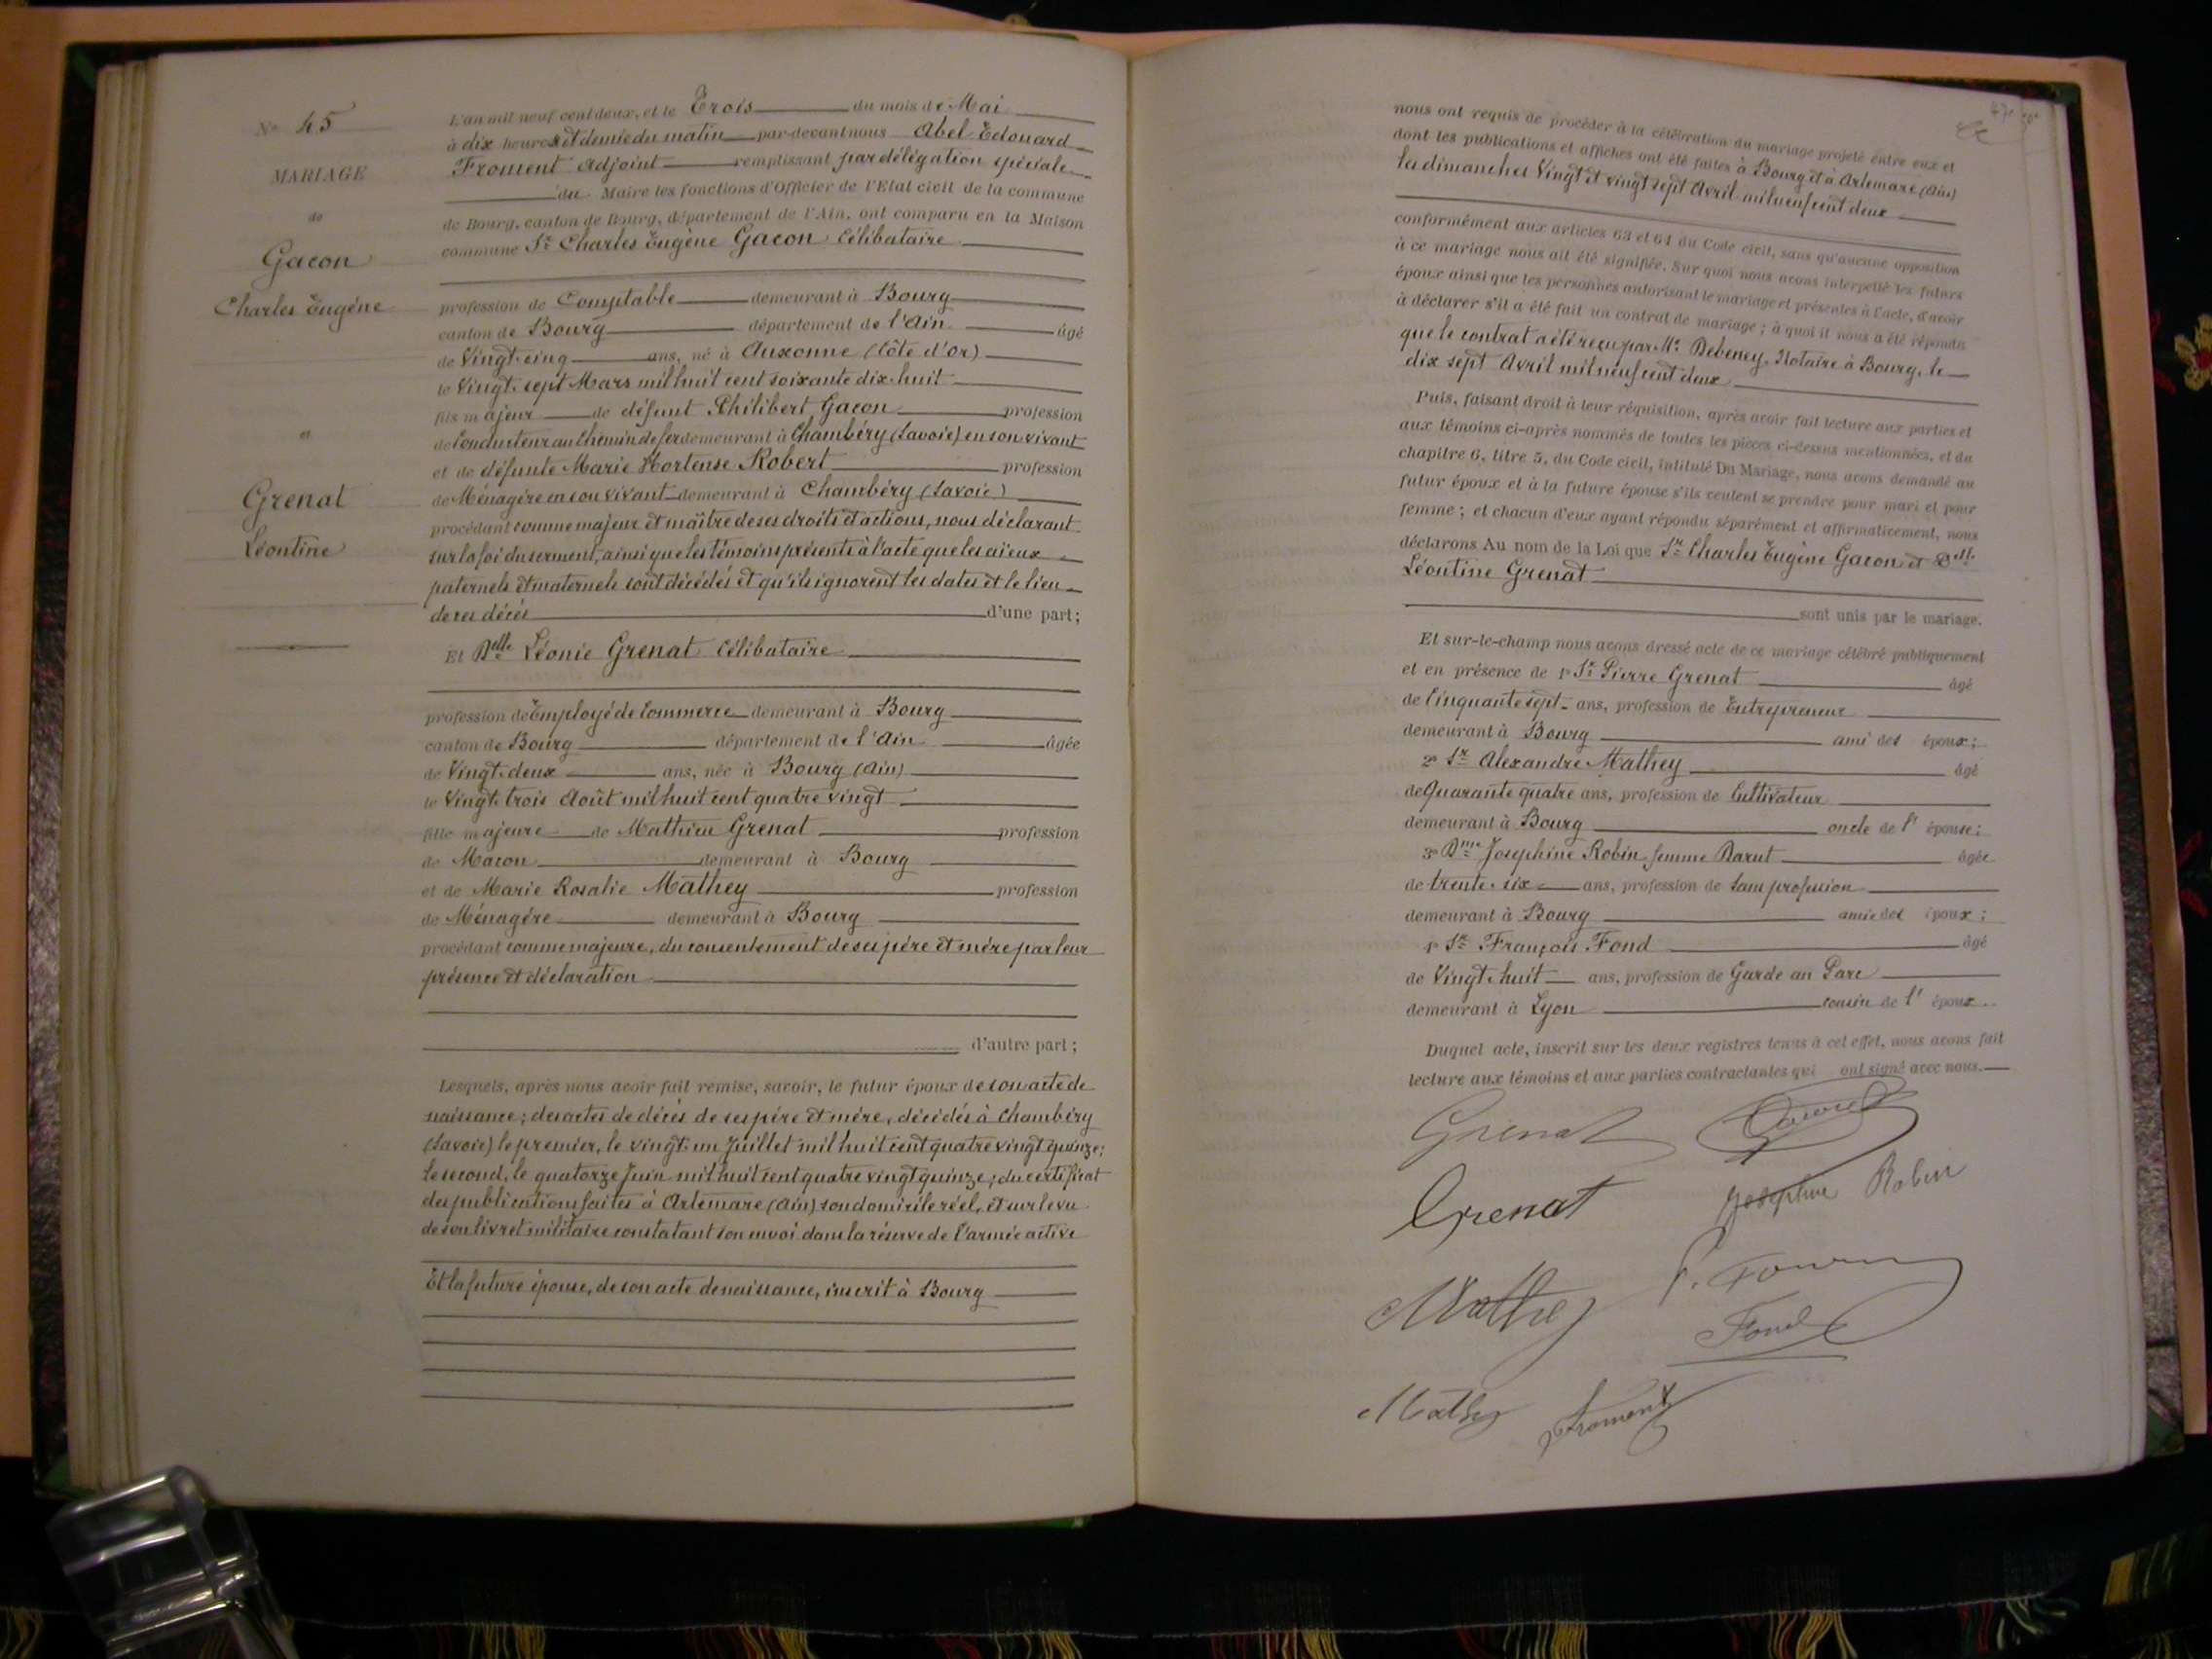 N° 45
MARIAGE
de
Gacon
Charles Eugène
et
Grenat
Léontine
L'an mil neuf cent deux, et le Trois du mois de Mai
à dix heures et demie du matin par-devant nous Abel Edouard
Froment Adjoint remplissant par délégation spéciale
du Maire les fonctions d'Officier de l'Etat civil de la commune
de Bourg, canton de Bourg, département de l'Ain, ont comparu en la Maison
commune Sr Charles Eugène Gacon célibataire
profession de Comptable demeurant à Bourg
canton de Bourg département de l'Ain âgé
de Vingt-cinq ans, né à Auxonne (Côte d'Or)
le Vingt-sept Mars mil huit cent soixante dix-huit
fils majeur de défunt Philibert Gacon profession
de Conducteur au Chemin de fer demeurant à Chambéry (Savoie) en son vivant
et de défunte Marie Hortense Robert profession
de Ménagère en son vivant demeurant à Chambéry (Savoie)
procédant comme majeur et maître de ses droits et actions, nous déclarant
sur la foi du serment, ainsi que les témoins présents à l'acte que les aïeux
paternels et maternels sont décédés et qu'ils ignorent les dates et le lieu
de ces décès d'une part;
Et Delle Léonie Grenat célibataire
profession de Employé de Commerce demeurant à Bourg
canton de Bourg département de l'Ain âgée
de Vingt-deux ans, née à Bourg (Ain)
le Vingt-trois Août mil huit cent quatre vingt
fille majeure de Mathieu Grenat profession
de Macon demeurant à Bourg
et de Marie Rosalie Mathey profession
de Ménagère demeurant à Bourg
procédant comme majeure, du consentement de ses père et mère par leur
présence et déclaration
d'autre part;
Lesquels, après nous avoir fait remise, savoir, le futur époux de son acte de
naissance; des actes de décès de ses père et mère, décédés à Chambéry
(Savoie) le premier, le vingt-un Juillet mil huit cent quatre vingt quinze;
le second, le quatorze Juin mil huit cent quatre vingt quinze; du certificat
des publications faites à Artemare (Ain) son domicile réel, et sur le vu
de son livret militaire constatant son envoi dans la réserve de l'armée active
Et la future épouse, de son acte de naissance, inscrit à Bourg
nous ont requis de procéder à la célébration du mariage projeté entre eux et
dont les publications et affiches ont été faites à Bourg et à Artemare (Ain)
les dimanches Vingt et vingt sept Avril mil neuf cent deux
conformément aux articles 63 et 64 du Code civil, sans qu'aucune opposition
à ce mariage nous ait été signifiée. Sur quoi nous avons interpellé les futurs
époux ainsi que les personnes autorisant le mariage et présentes à l'acte, d'avoir
à déclarer s'il a été fait un contrat de mariage; à quoi il nous a été répondu
que le contrat a été reçu par Me Debeney, Notaire à Bourg, le
dix sept Avril mil neuf cent deux
Puis, faisant droit à leur réquisition, après avoir fait lecture aux parties et
aux témoins ci-après nommés de toutes les pièces ci-dessus mentionnées, et du
chapitre 6, titre 5, du Code civil, intitulé Du Mariage, nous avons demandé au
futur époux et à la future épouse s'ils veulent se prendre pour mari et pour
femme; et chacun d'eux ayant répondu séparément et affirmativement, nous
déclarons Au nom de la Loi que Sr Charles Eugène Gacon et Delle
Léontine Grenat
sont unis par le mariage.
Et sur-le-champ nous avons dressé acte de ce mariage célébré publiquement
et en présence de 1° Sr Pierre Grenat âgé
de Cinquante sept ans, profession de Entrepreneur
demeurant à Bourg ami des époux;
2° Sr Alexandre Mathey âgé
de Quarante quatre ans, profession de Cultivateur
demeurant à Bourg oncle de l' épouse;
3° Dme Joséphine Robin femme Darut âgée
de trente-six ans, profession de Sans profession
demeurant à Bourg amie des époux;
4° Sr François Fond âgé
de Vingt-huit ans, profession de Garde au Parc
demeurant à Lyon cousin de l' époux
Duquel acte, inscrit sur les deux registres tenus à cet effet, nous avons fait
lecture aux témoins et aux parties contractantes qui ont signé avec nous.
Grenat
Grenat
Joséphine Robin
Mathey
Fond
Mathey
Froment